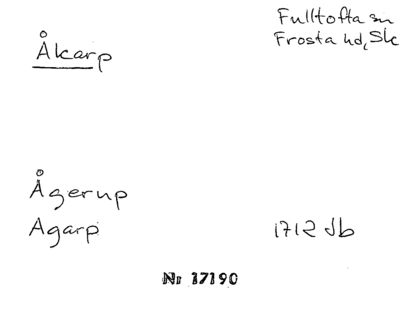 Fulltofta sn
Frosta hd, Sk
Åkarp
Ågerup
Agarp 1712 Jb
Nr 17190